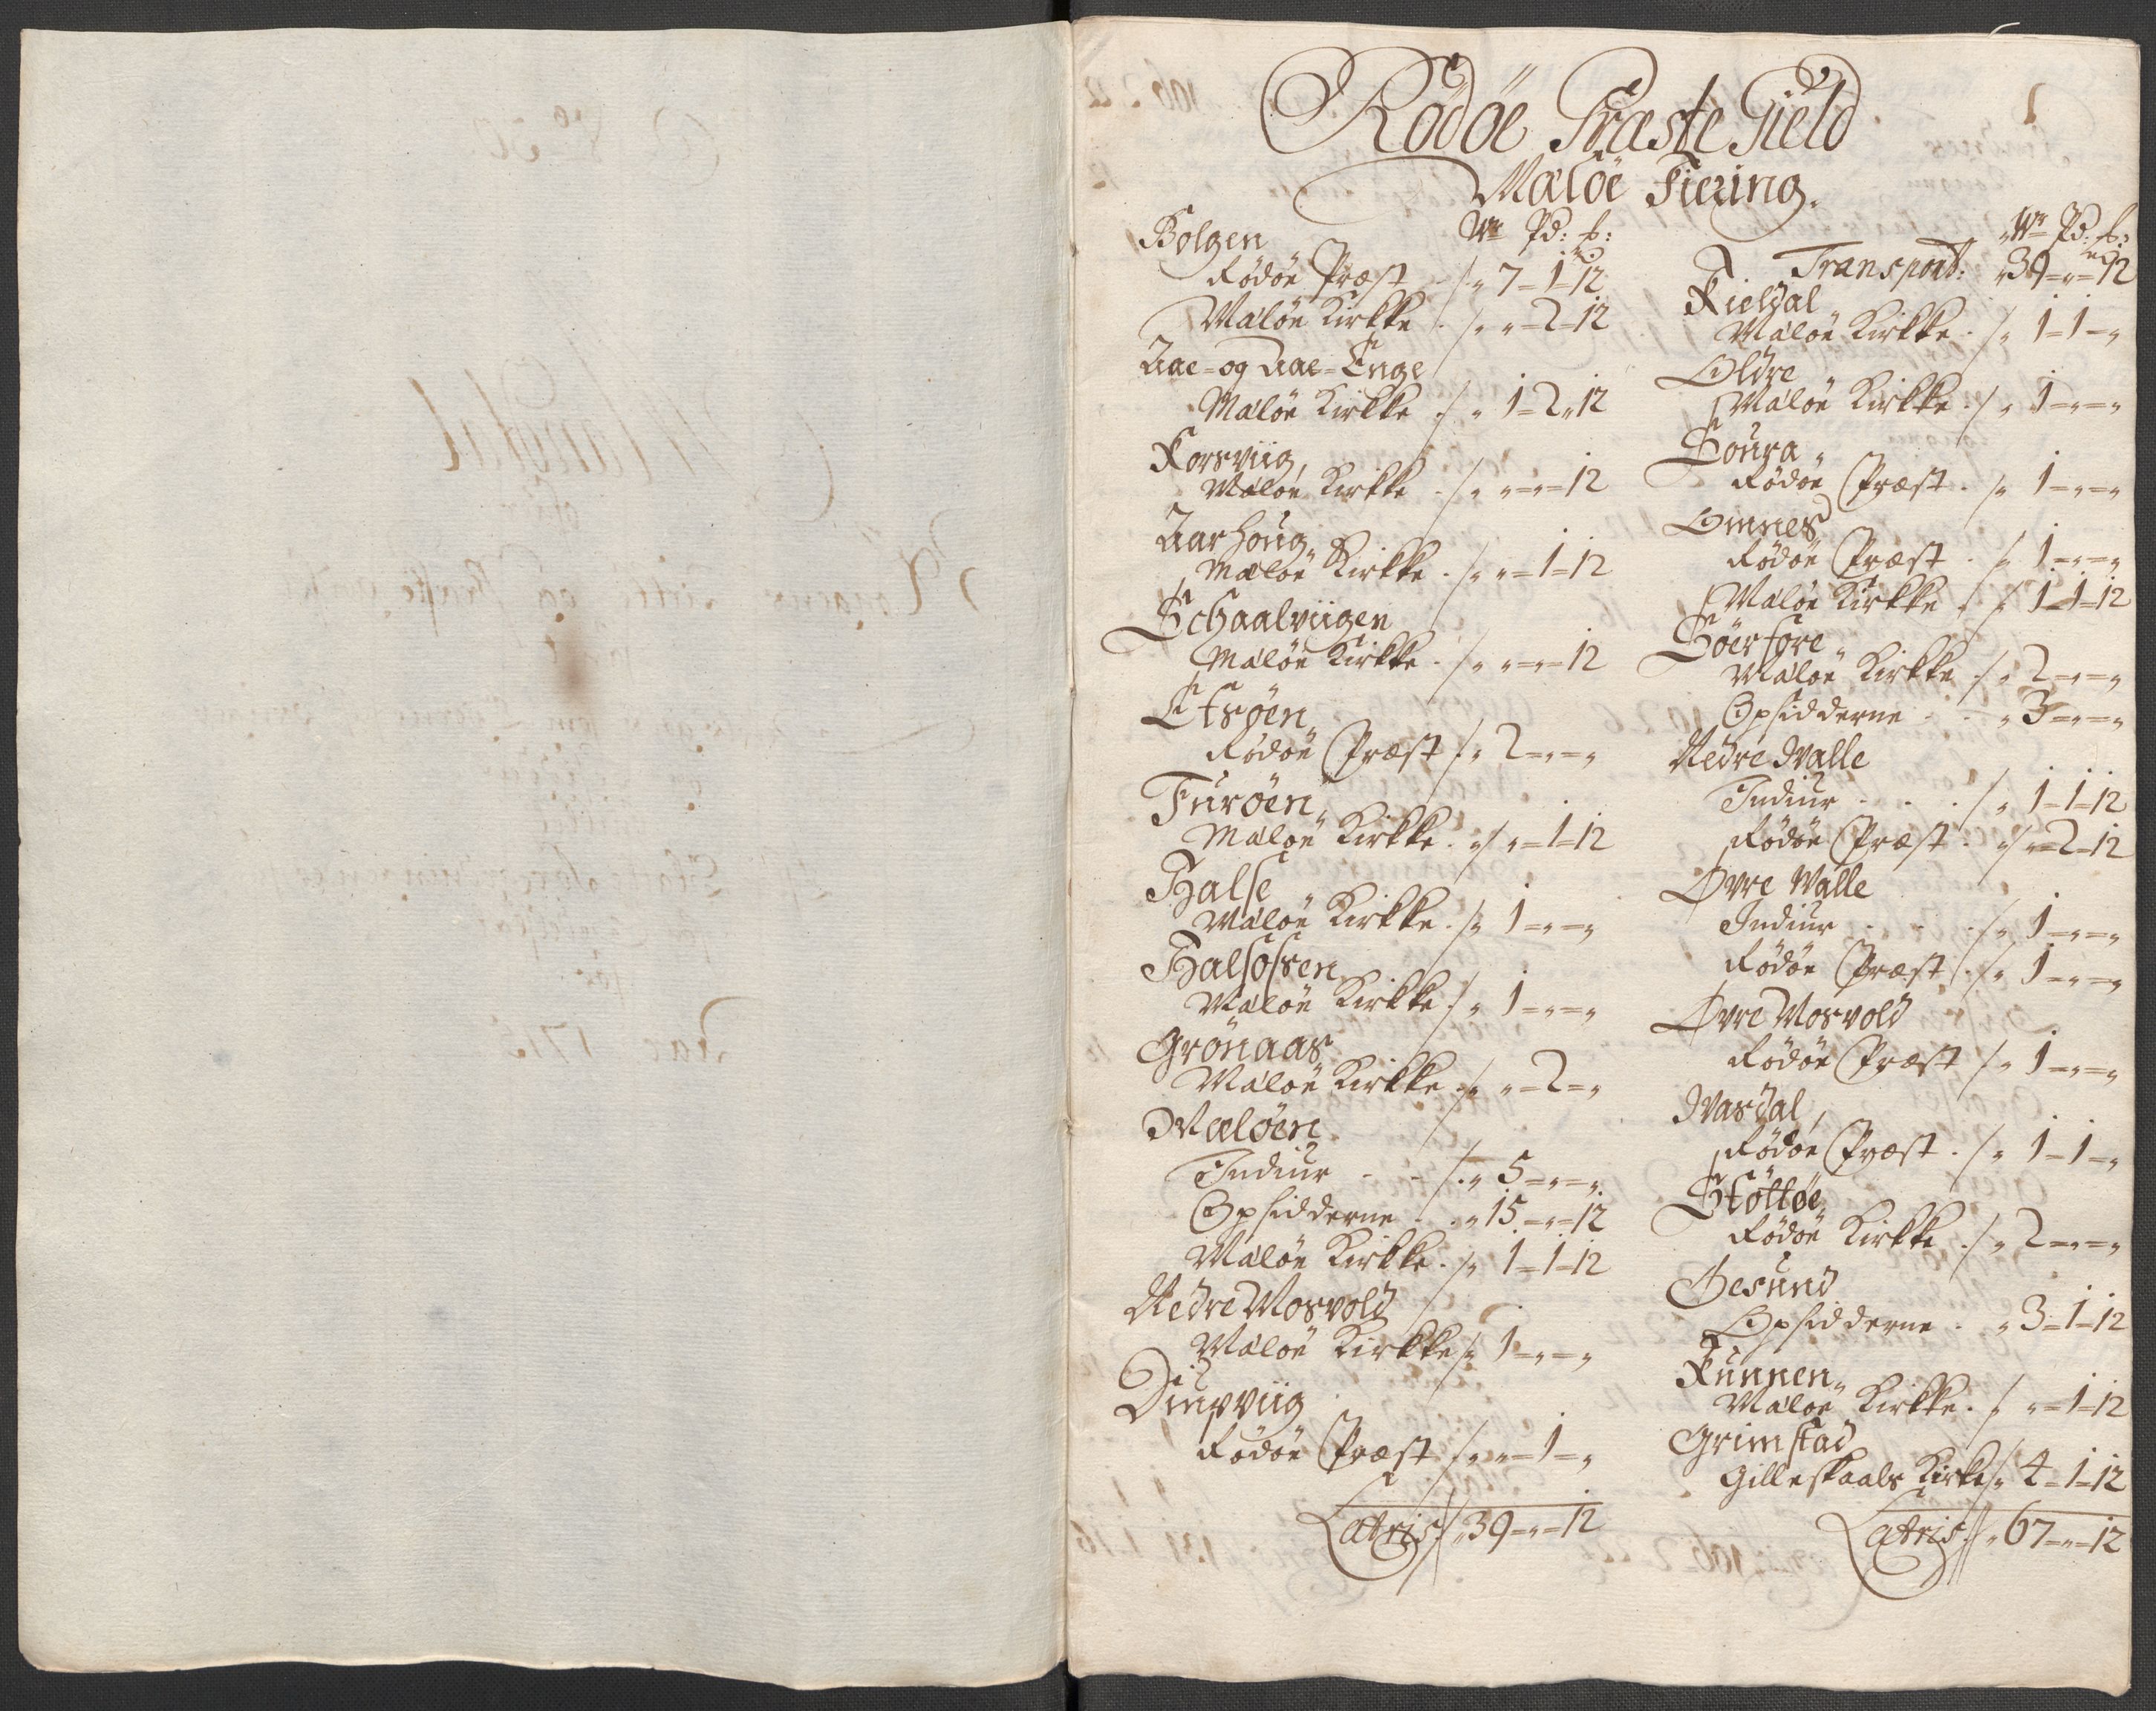 1
Rödöe Præste Gield
Maløe Fiering.
Wr Pd: ƕ:
Bolgen
Rödöe Præst ./. „ 7 - 1 - 12
Maløe Kirkke . /. „ „ = 2 = 12
Aae = og Aae = Enge
Maløe Kirkke ./ „ 1 = 2 „ 12
Forsviig,
Maløe Kirkke . /. „ „ = „ = 12
Aarhoug
Maløe Kirkke . /. „ „ = 1 = 12
Schaalviigen
Maløe Kirkke . /. „ „ = „ = 12
Etsöen
Rödöe Præst /. „ 2 = „ = „
Furöen
Maløe Kirkke . „/ „ = 1 = 12
Halse
Maløe Kirkke . /„ 1 = „ = „
Halsosen
Maløe Kirkke ./ „ 1 = „ = „
Grönaas
Maløe Kirkke ./„ „ = 2 = „
Maløen
Indiur - - /. „ 5 = „ = „
Opsidderne . . „ 15 = „ = 12
Maløe Kirkke . /„ 1 = 1 = 12
Nedre Mosvold
Maløe Kirkke /„ 1 = „ = „
Diupviig
Rödöe Præst /. „ „ = 1 = „
Latris / „ 39 = „ = 12
Wr Pd: ƕ:
Transport: „ 39 = „ = 12
Kieldal
Maløe Kirkke . /„ 1 = 1 = „
Oldre
Maløe Kirkke ./ „ 1 = „ = „
Soura
Rödöe Præst . /„ 1 = „ = „
Omnes
Rödöe Præst . /„ 1 = „ = „
Maløe Kirkke „ / 1 = 1 = 12
Söerfore
Maløe Kirkke ./ „ 2 = „ = „
Opsidderne - . „ 3 = „ = „
Nedre Walle
Indiur - . . / „ 1 = 1 = 12
Rödöe Præst . „/ „ = 2 = 12
Övre Walle
Indiur - . ./„ 1 = „ = „
Rödöe Præst . /„ 1 = „ = „
Övre Mosvold
Rödöe Præst /„ 1 = „ = „
Wasdal
Rödöe Præst . / „ 1 = 1 = „
Stöttöe
Rödöe Kirkke ./ „ 2 = „ = „
Gesund
Opsidderne . „ 3 = 1 = 12
Kunnen
Maløe Kirkke . / „ = 1 = 12
Grimstad
Gilleskaals Kirke /„ 4 = 1 = 12
Latris // „ 67 = „ = 12